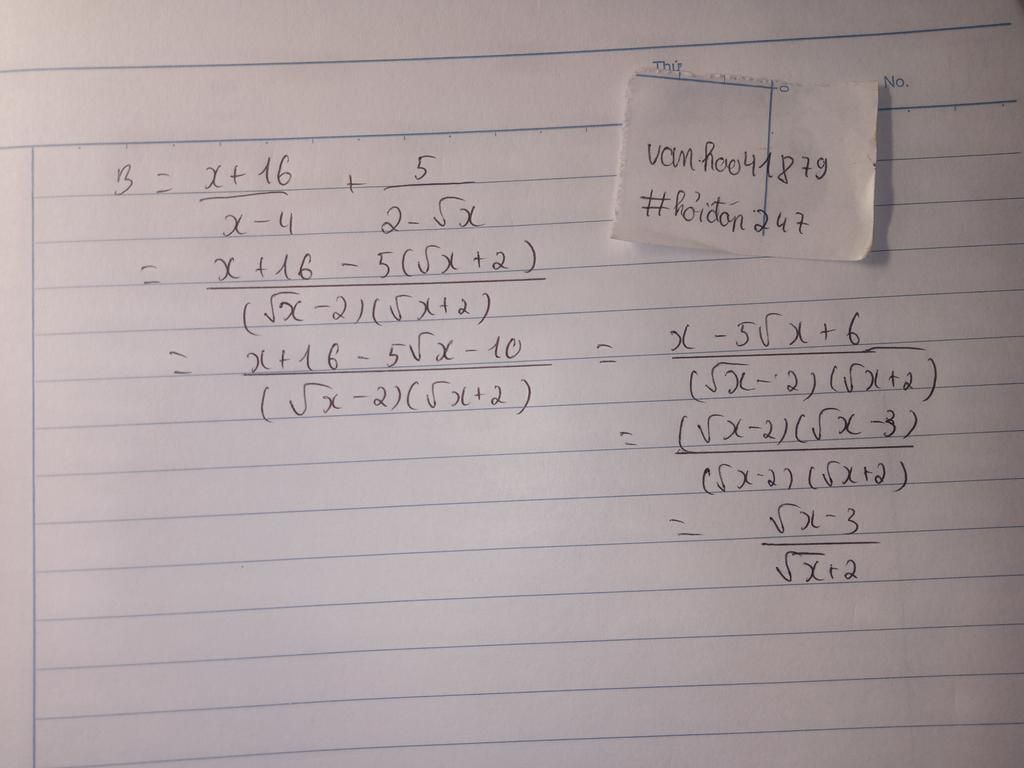 Thứ
No.
van hoo41879
#hỏiđán 247
B = x+16/x-4 + 5/2-√x
= x+16 - 5(√x+2)/(√x-2)(√x+2)
= x+16 - 5√x - 10/(√x-2)(√x+2) = x - 5√x + 6/(√x-2)(√x+2)
= (√x-2)(√x-3)/(√x-2)(√x+2)
= √x-3/√x+2